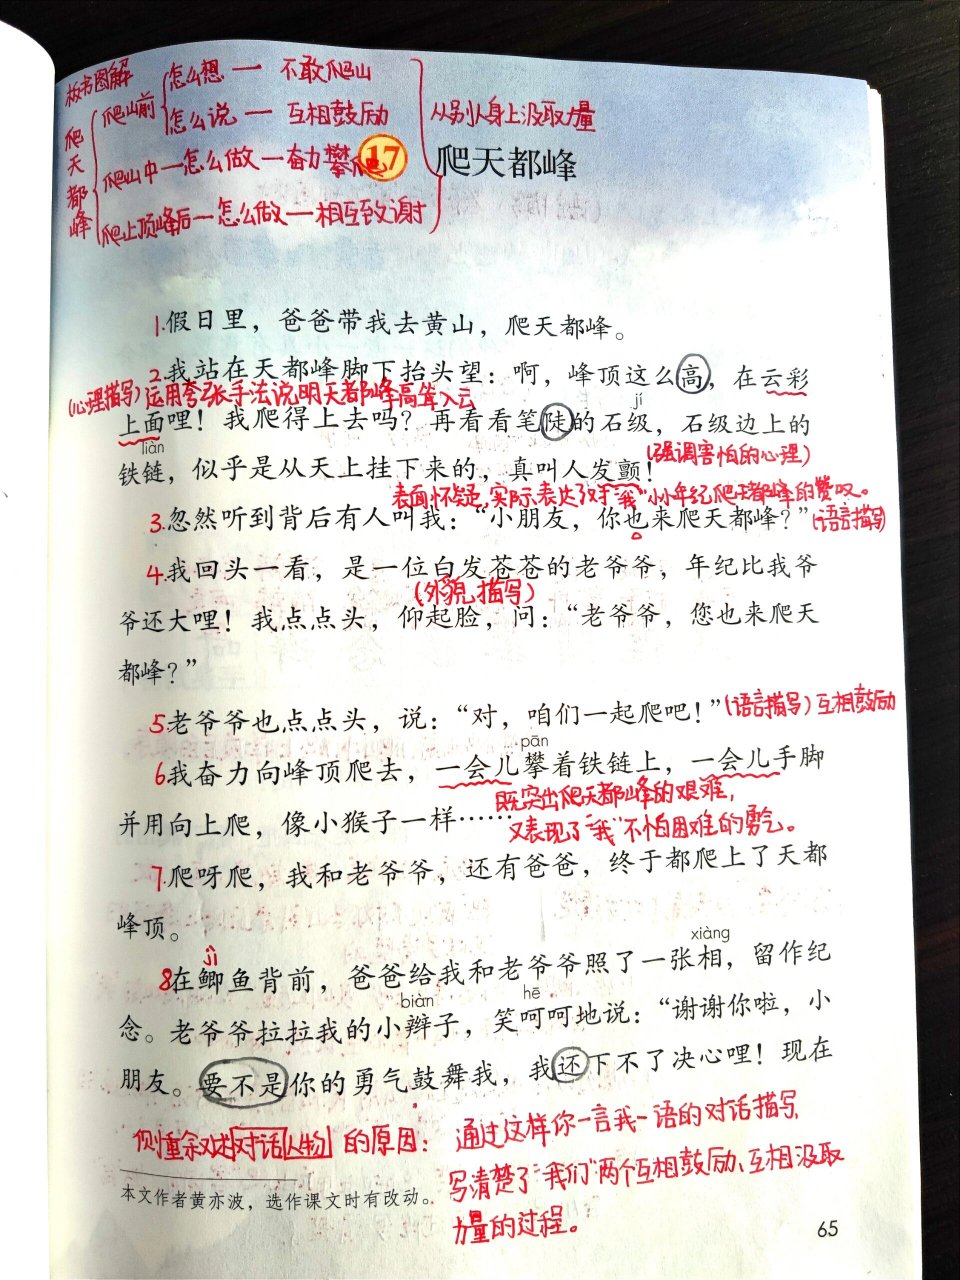 板书图解
爬天都峰
爬山前
怎么想 — 不敢爬山
怎么说 — 互相鼓励
爬山中 — 怎么做 — 奋力攀爬
爬上顶峰后 — 怎么做 — 相互致谢
从别人身上汲取力量
17 爬天都峰
1.假日里，爸爸带我去黄山，爬天都峰。
2.我站在天都峰脚下抬头望：啊，峰顶这么高，在云彩
(心理描写)运用夸张手法说明天都峰高耸入云
jí
上面哩！我爬得上去吗？再看看笔陡的石级，石级边上的
liàn
(强调害怕的心理)
铁链，似乎是从天上挂下来的，真叫人发颤！
表面怀疑，实际表达了对“我”小小年纪爬天都峰的赞叹。
3.忽然听到背后有人叫我：“小朋友，你也来爬天都峰？”(语言描写)
4.我回头一看，是一位白发苍苍的老爷爷，年纪比我爷
(外貌描写)
爷还大哩！我点点头，仰起脸，问：“老爷爷，您也来爬天
都峰？”
5.老爷爷也点点头，说：“对，咱们一起爬吧！”(语言描写)互相鼓励
pān
6我奋力向峰顶爬去，一会儿攀着铁链上，一会儿手脚
既突出爬天都峰的艰难，
并用向上爬，像小猴子一样……
又表现了“我”不怕困难的勇气。
7.爬呀爬，我和老爷爷，还有爸爸，终于都爬上了天都
峰顶。
jì
xiàng
8在鲫鱼背前，爸爸给我和老爷爷照了一张相，留作纪
biàn
hē
念。老爷爷拉拉我的小辫子，笑呵呵地说：“谢谢你啦，小
朋友。要不是你的勇气鼓舞我，我还下不了决心哩！现在
侧重叙述对话人物的原因：
通过这样你一言我一语的对话描写，
写清楚了“我们”两个互相鼓励、互相汲取
力量的过程。
本文作者黄亦波，选作课文时有改动。
65